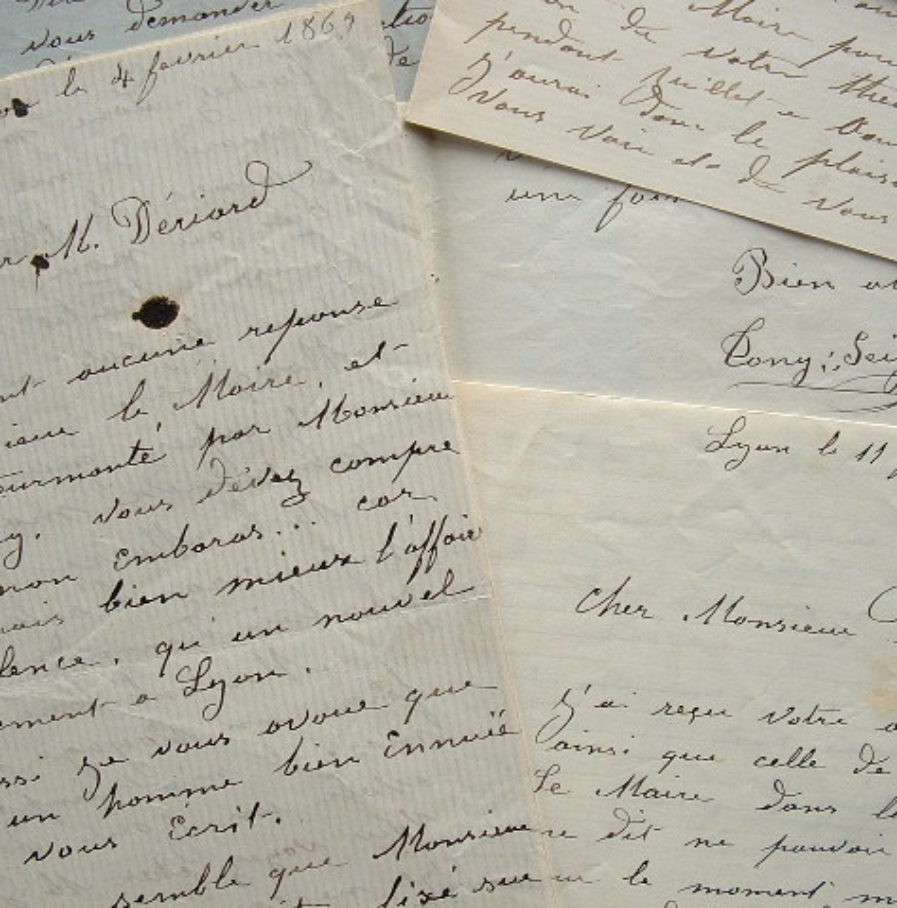 vous demander
le 4 fevrier 1869
M. Dériard
aucune reponse
le Maire, et
par Monsieur
vous devez compre
mon embaras... car
bien mieux l'affair
lence, qu'un nouvel
ement a Lyon.
ssi je vous avoue que
un homme bien ennuié
vous écrit.
semble que Monsieur
fixé sur
Maire pour
de votre thea
pendant Juillet
J'aurai donc le plais
vous voir et de vous
une fois
Bien
Tony; Sei
Lyon le 11
Cher Monsieur
J'ai reçu votre
ainsi que celle de
Le Maire dans
dit ne pouvoir
le moment